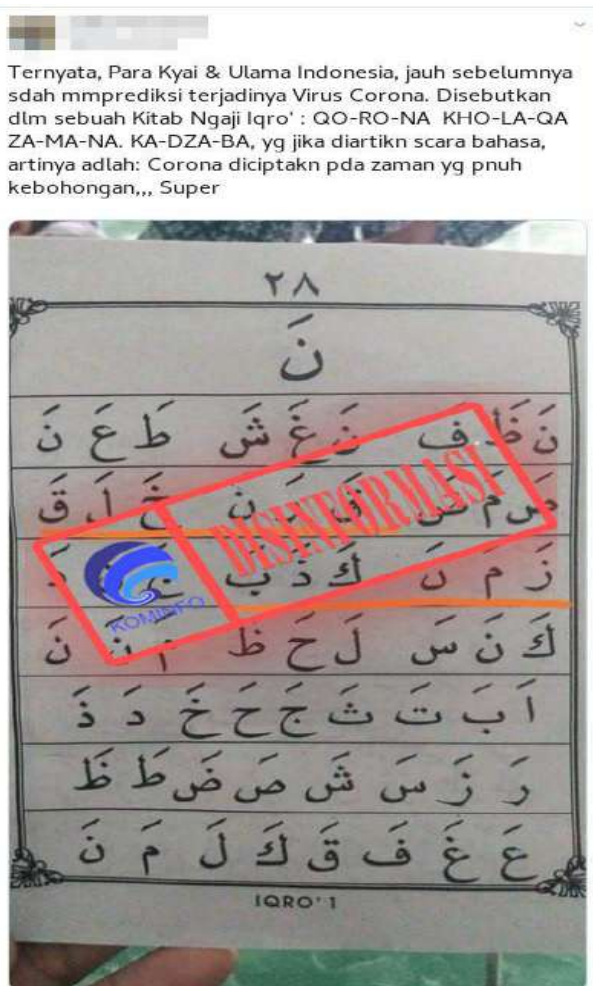 Ternyata, Para Kyai & Ulama Indonesia, jauh sebelumnya
sdah mmprediksi terjadinya Virus Corona. Disebutkan
dlm sebuah Kitab Ngaji Iqro' : QO-RO-NA KHO-LA-QA
ZA-MA-NA. KA-DZA-BA, yg jika diartikn scara bahasa,
artinya adlah: Corona diciptakn pda zaman yg pnuh
kebohongan,,, Super
٢٨
نَ
نَ ظَ فَ نَ غَ شَ طَ عَ نَ
صَ مَ ضَ قَ رَ نَ خَ لَ قَ
زَ مَ نَ كَ ذَ بَ
كَ نَ سَ لَ حَ ظَ مَ نَ نَ
اَ بَ تَ ثَ جَ حَ خَ دَ ذَ
رَ زَ سَ شَ صَ ضَ طَ ظَ
عَ غَ فَ قَ كَ لَ مَ نَ
IQRO' 1
KOMINFO
DISINFORMASI